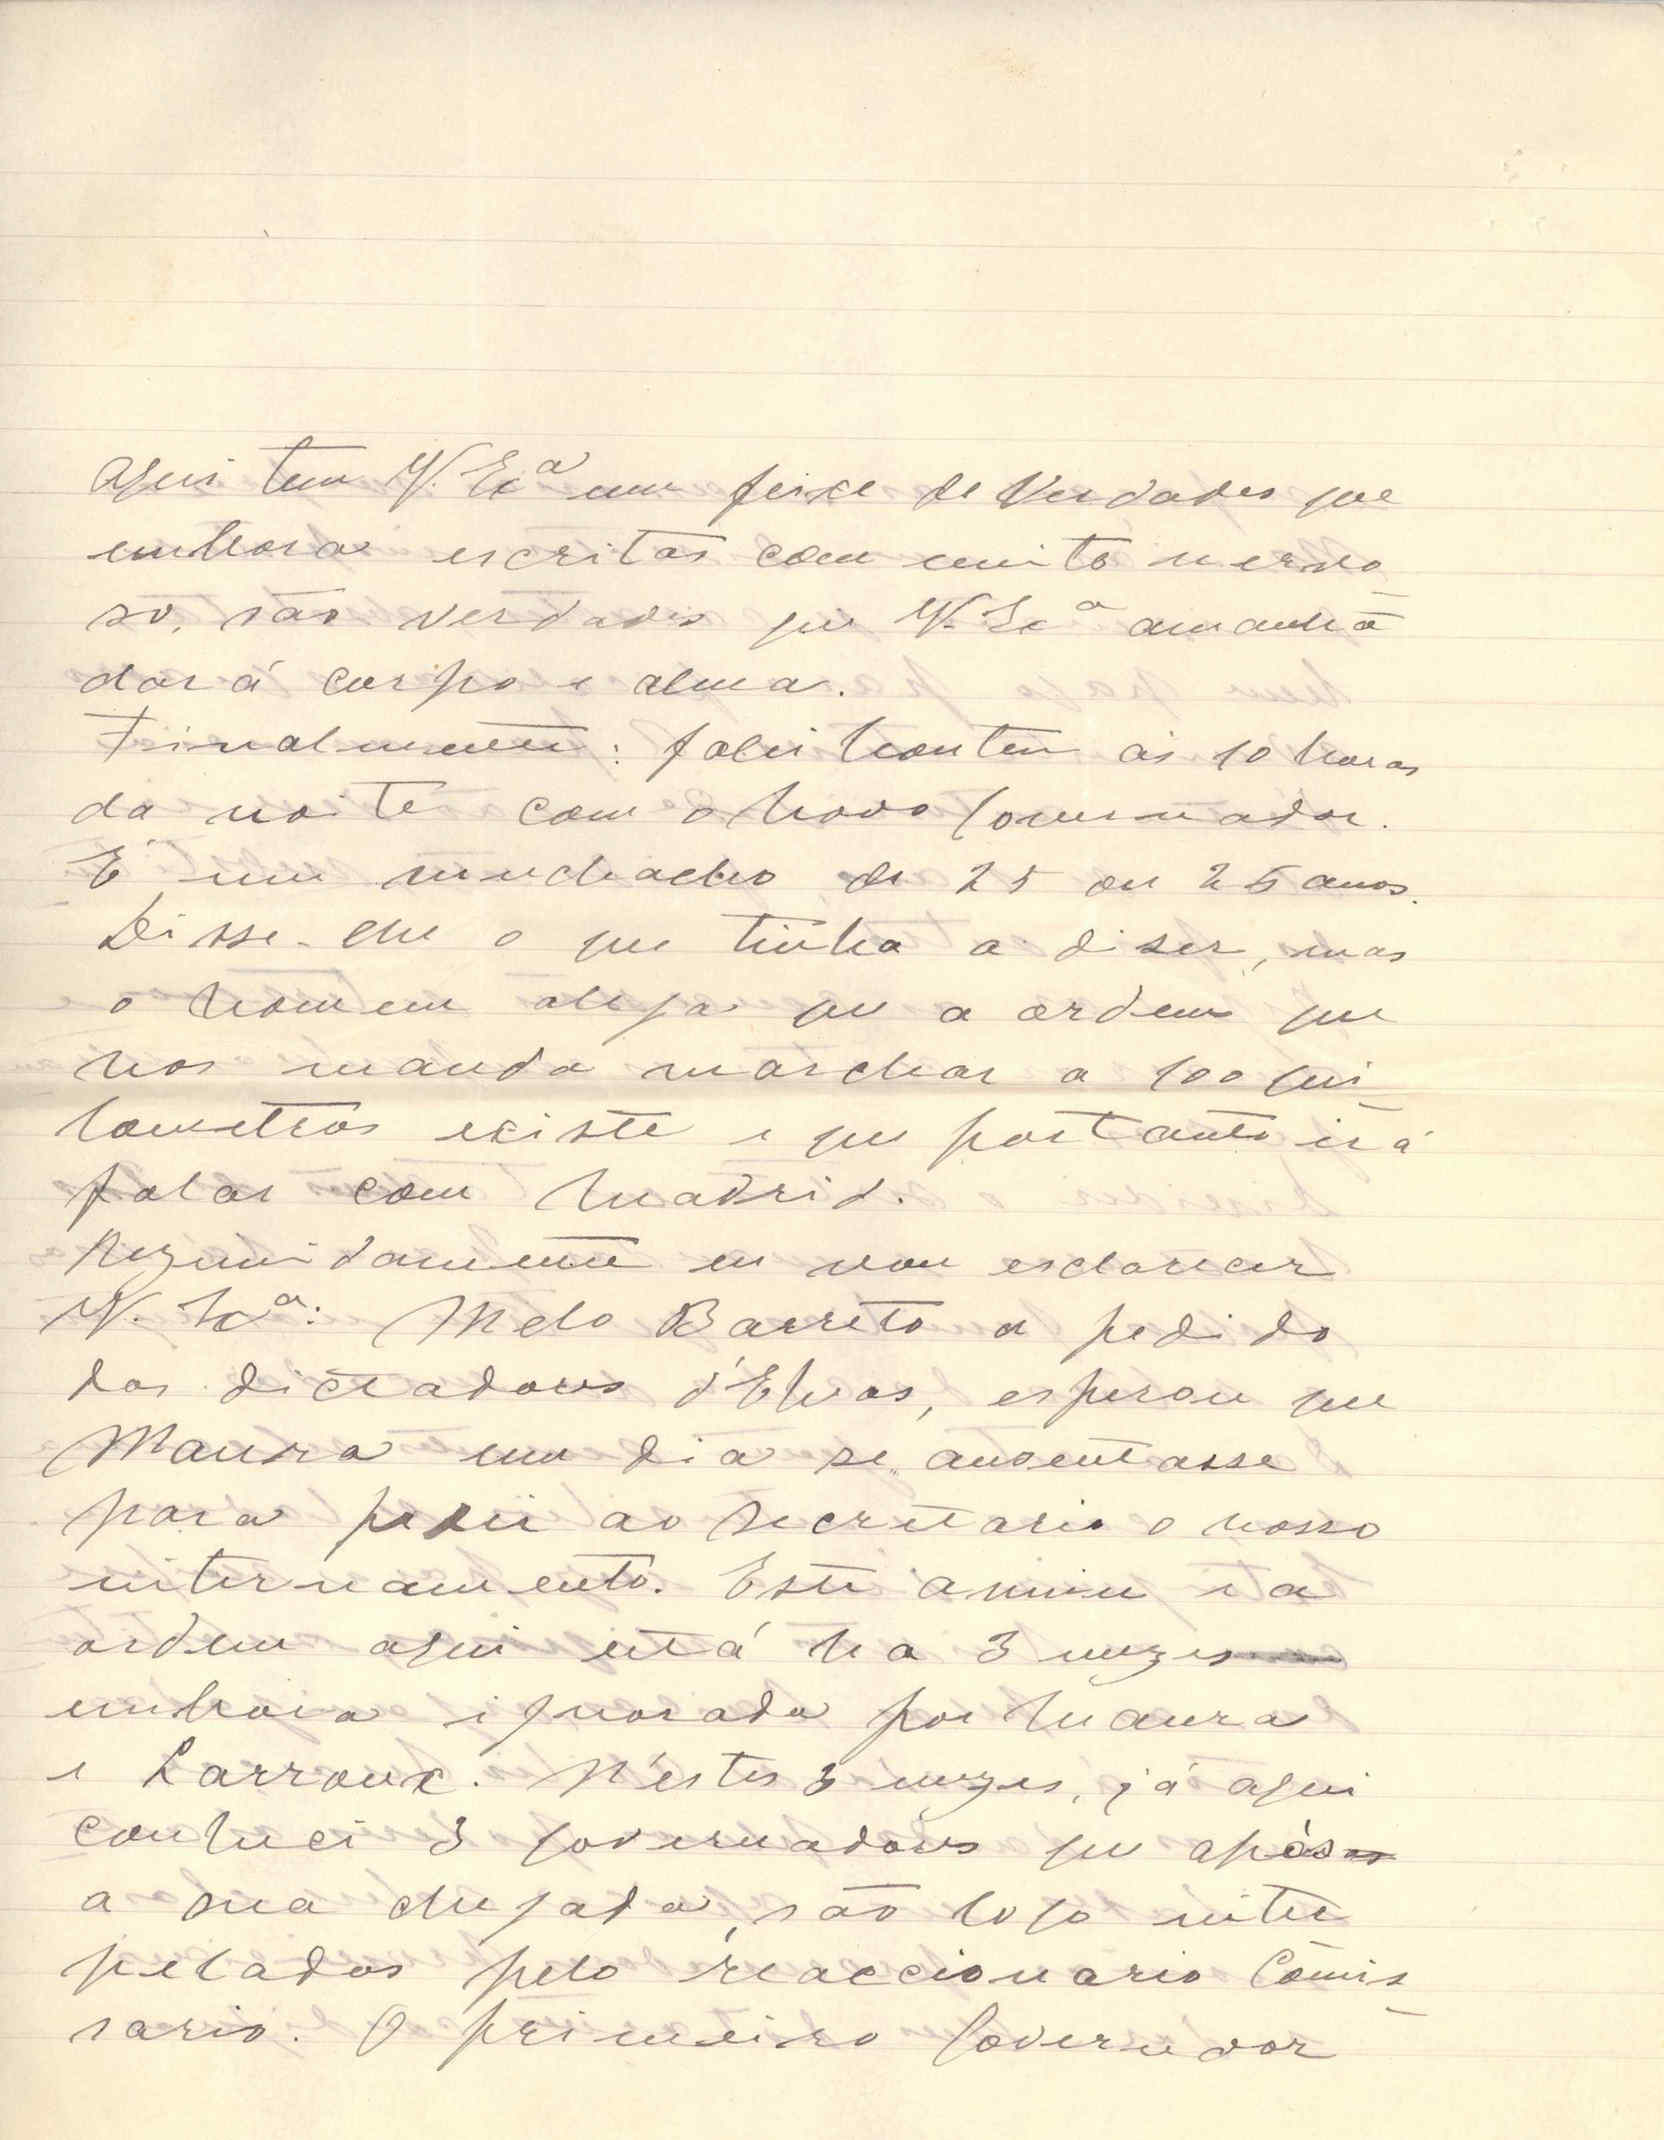 Aqui tem V. Exª um feixe de verdades que
embora escritas com muito nervo
so, são verdades que V. Exª amanhã
dará corpo e alma.
Finalmente: falei hontem ás 10 horas
da noite com o novo Governador.
É um muchacho de 25 ou 26 anos.
Disse-lhe o que tinha a diser, mas
o homem alega que a ordem que
nos manda marchar a 100 qui
lometros existe e que portanto irá
falar com Madrid.
Rezumidamente eu vou esclarecer
V. Exª: Melo Barreto a pedido
dos dictadores d'Elvas, esperou que
Maura um dia se ausentasse
para pedir ao secretario o nosso
internamento. Este anuiu e a
ordem aqui está ha 3 mezes
embora ignorada por Maura
e Larroux. N'estes 3 mezes, já aqui
conheci 3 governadores que após
a sua chegada, são logo inter
pelados pelo reaccionário Comis
sario. O primeiro Governador